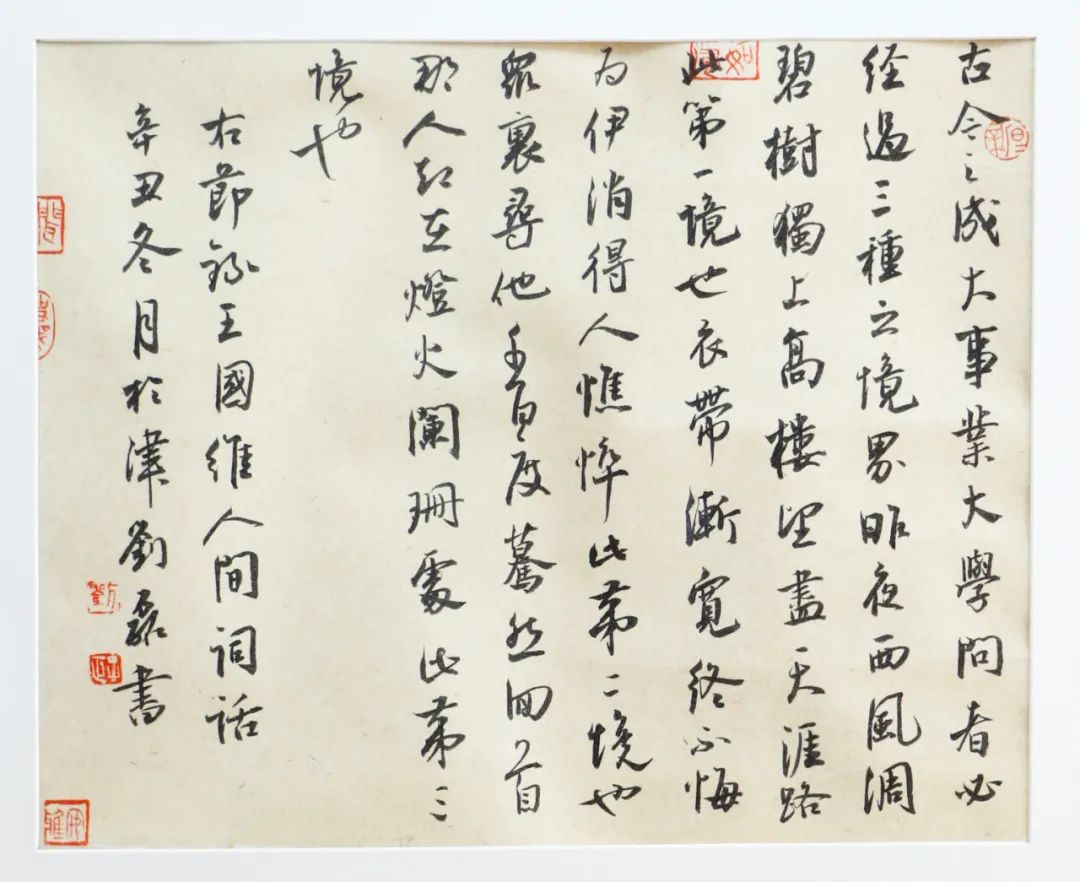 古今之成大事業大學問者必
經過三種之境界昨夜西風凋
碧樹獨上高樓望盡天涯路
此第一境也衣帶漸寬終不悔
為伊消得人憔悴此第二境也
眾裏尋他千百度驀然回首
那人却在燈火闌珊處此第三
境也
右節錄王國維人間詞話
辛丑冬月於津劉磊書
劉